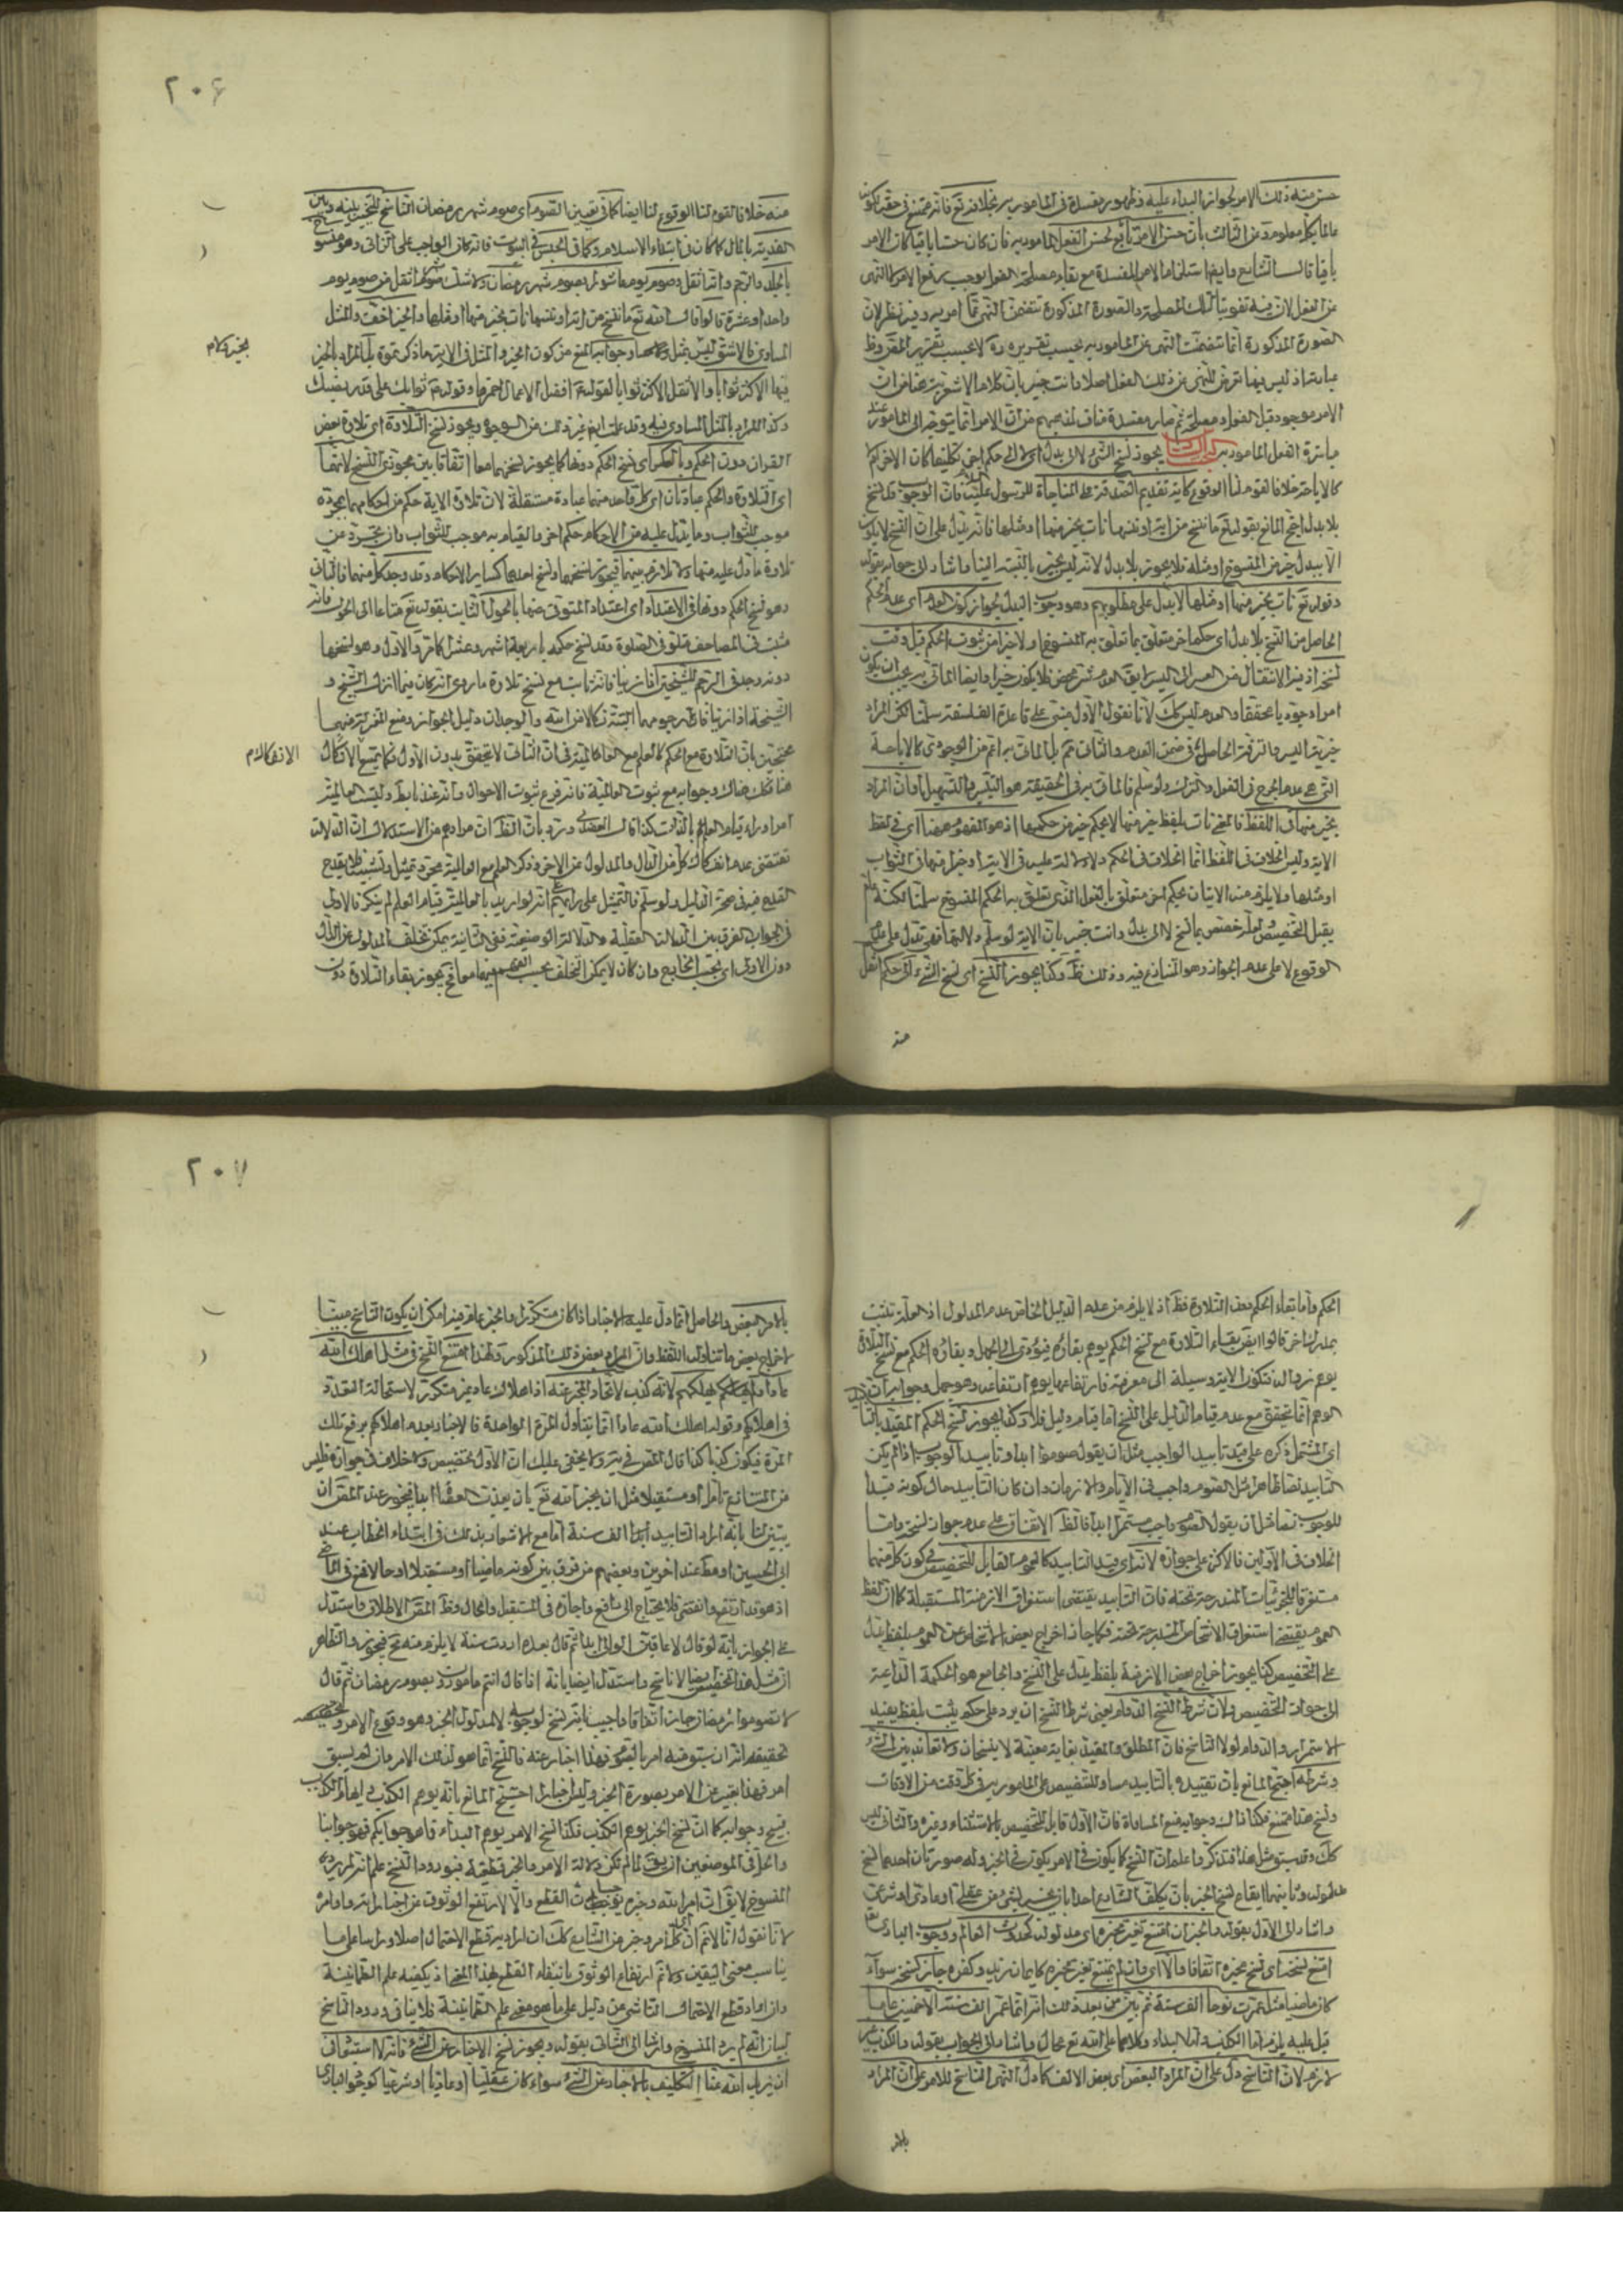 ٢٠۶
حسن منه ذلك الامر لجواز البداء عليه وظهور مفسدة فى المأمور به بخلافه تع فانه ممتنع فى حقه لكونه
عالما بكل معلوم وعن الثالث بان حسن الامر تابع لحسن الفعل المأمور به فان كان حسنا باقيا كان الامر
باقيا قال الشايع وايضا استلزام الامر المفسدة مع بقاء مصلحة الفعل يوجب رفع الامر لا النهى
عن الفعل لان فيه تفويتا لتلك المصلحة والصورة المذكورة تتضمن النهى عما امر به وفيه نظر لان
الصورة المذكورة انما تضمنت النهى عن المأمور به بحسب تقريره ره لا بحسب تقرير المص وظ
عبارته اذ ليس فيها تعرض للنهى عن ذلك الفعل اصلا وانت خبير بان كلام الاشعرية هنا من ان
الامر موجود قبل الفعل ومصلحته ثم صار مفسدة مناف لمذهبهم من ان الامر انما يتوجه الى المأمور عند
مباشرة الفعل المأمور به يجوز نسخ الشئ لا الى بدل اى لا الى حكم اخر تكليفا كان الاخر ام
كالاباحة خلافا لقوم لنا الوقوع كاية تقديم الصدقة عند المناجاة للرسول عليه السلام فان الوجوب قد نسخ
بلا بدل احتج المانع بقوله تع ما ننسخ من اية او ننسها نات بخير منها او مثلها فانه يدل على ان النسخ لا يكون
الا ببدل خير من المنسوخ او مثله فلا يجوز بلا بدل لانه ليس بخير بالنسبة الينا واشار الى جوابه بقوله
وقوله تع نات بخير منها او مثلها لا يدل على مطلوبهم وهو وجوب البدل لجواز كون العدم اى عدم الحكم
الحاصل من النسخ بلا بدل اى حكما اخر متعلق بما تعلق به المنسوخ اولا خيرا من ثبوت الحكم قبل وقت
نسخه اذ فيه الانتقال من العسر الى اليسر لا يق العدم شر محض فلا يكون خيرا وايضا الماتى به يجب ان يكون
امرا وجوديا محققا والعدم ليس كك لانا نقول الاول مبنى على قاعدة الفلسفة سلمنا لكن المراد
خيرية اليسر والترفه الحاصل فى ضمن العدم والثانى ثم بل الماتى به اعم من الوجودى كالاباحة
التى هى عدم الحرج فى الفعل والترك ولو سلم فالماتى به فى الحقيقة هو التيسير والتسهيل او ان المراد
بخير منها فى اللفظ فالمعنى نات بلفظ خير منها لا بحكم خير من حكمها اذ هو المفهوم هنا اى فى لفظ
الاية وليس الخلاف فى اللفظ انما الخلاف فى الحكم ولا دلالة عليه فى الاية او خيرا منها فى الثواب
او مثلها ولا يلزم منه الاتيان بحكم اخر متعلق بالفعل الذى تعلق به الحكم المنسوخ سلمنا لكنه عام
يقبل التخصيص فلعله خصص بما نسخ لا الى بدل وانت خبير بان الاية لو سلم دلالتها فهى تدل على عدم
الوقوع لا على عدم الجواز وهو المتنازع فيه وذلك ظ وكذا يجوز النسخ اى نسخ الشئ الى حكم اثقل
منه
منه خلافا لقوم لنا الوقوع لنا ايضا كما فى تعيين الصوم اى صوم شهر رمضان الناسخ للتخيير بينه وبين
الفدية بالمال كما كان فى ابتداء الاسلام وكما فى الحبس فى البيوت فانه كان الواجب على الزانى وهو منسوخ
بالجلد والرجم وانه اثقل وصوم يوم عاشورا بصوم شهر رمضان ولا شك صوم شهر اثقل من صوم يوم
واحد او عشرة قالوا قال الله تع ما ننسخ من اية او ننسها نات بخير منها او مثلها والخير اخف والمثل
المساوى فالاشق ليس بمثل ولا وجوابه المنع من كون الخير والمثل فى الاية ما ذكرتموه بل المراد بالخير
بخير كلام
فيها الاكثر ثوابا والاثقل الاكثر ثوابا لقوله ع افضل الاعمال احمزها وقوله ع ثوابك على قدر نصبك
وكذا المراد بالمثل المساوى فيه وقد علمت ايضا غير ذلك من الوجوه ويجوز نسخ التلاوة اى تلاوة بعض
القران دون الحكم وبالعكس اى نسخ الحكم دونها كما يجوز نسخهما معا اتفاقا بين مجوزى النسخ لانهما
اى التلاوة والحكم عبادتان اى كل واحد منهما عبادة مستقلة لان تلاوة الاية حكم من احكامها بمجرده
موجب للثواب وما يدل عليه من الاحكام حكم اخر والقيام به موجب للثواب وان تجرد عن
تلاوة ما دل عليه منها ولا تلازم بينهما فيجوز نسخهما ونسخ احدهما كساير الاحكام وقد وجد كل منهما فالثانى
وهو نسخ الحكم دونها فى الاعتداد اى اعتداد المتوفى عنها بالحول الثابت بقوله تع متاعا الى الحول فانه
مثبت فى المصاحف متلو فى الصلوة وقد نسخ حكمه باربعة اشهر وعشرا كما مر والاول وهو نسخها
دونه وجد فى الرجم للشيخين اذا زنيا فانه ثابت مع نسخ تلاوة ما روى انه كان مما انزل الشيخ و
الشيخة اذا زنيا فارجموهما البتة نكالا من الله والوجدان دليل الجواز ومنع المعتزلة منهما
محتجين بان التلاوة مع الحكم كالعلم مع العالمية فى ان الثانى لا يتحقق بدون الاول فكما يمتنع الانفكاك
الانفكاك م
هنا فكك هناك وجوابه مع ثبوت العالمية فانه فرع ثبوت الاحوال وانه عندنا بط وليست العالمية
امرا وراء قيام العلم بالذات كذا قال العضدى ورد بان الظ ان مرادهم من الاستدلال ان الدلالة
تقتضى عدم انفكاك كل من الدال والمدلول عن الاخر وذكر العلم مع العالمية مجرد تمثيل وتشبيه فلا يقدح
القدح فيه فى صحة الدليل ولو سلم فالتمثيل على رايهم ثم انه لو اريد بالعالمية قيام العلم لم ينكر فالاولى
فى الجواب الفرق بين الدلالة العقلية والدلالة الوضعية ففى الثانية يمكن تخلف المدلول عن الدال
دون الاولى اى بحسب الخارج وان كان لا يمكن التخلف بحسب الفهم فيهما معا فح يجوز بقاء التلاوة دون
٢٠٧
الحكم واما بقاء الحكم بدون التلاوة فظ اذ لا يلزم من عدم الدليل الخاص عدم المدلول اذ لعله تثبت
بمدرك اخر قالوا ايض بقاء التلاوة مع نسخ الحكم يوهم بقاءه فيؤدى الى الجهل وبقاء الحكم مع نسخ التلاوة
يوهم زواله فتكون الاية وسيلة الى معرفته فارتفاعها يوهم ارتفاعه وهو جهل وجوابه ان ذلك
الوهم انما تحقق مع عدم قيام الدليل على النسخ اما قيام دليل فلا وكذا يجوز نسخ الحكم المقيد بالتا
اى المشتمل ذكره على قيد تابيد الواجب مثل ان يقول صوموا ابدا وتابيد الوجوب اذا لم يكن
التابيد نصا ظاهرا مثل الصوم واجب فى الايام والازمان وان كان التابيد حال كونه قيدا
للوجوب نصا مثل ان يقول الصوم واجب مستمر ابدا فالظ الاتفاق على عدم جواز نسخه واما
الخلاف فى الاولين فالاكثر على جوازه لانه اى قيد التابيد كالعموم القابل للتخصيص فى كون كل منهما
مستغرقا للجزئيات المندرجة تحته فان التابيد يقتضى استغراق الازمنة المستقبلة كما ان لفظ
العموم يقتضى استغراق الاشخاص المندرجة تحته فكما جاز اخراج بعض الاشخاص عن العموم بلفظ يدل
على التخصيص كذا يجوز اخراج بعض الازمنة بلفظ يدل على النسخ والجامع هو الحكمة الداعية
الى جواز التخصيص ولان شرط النسخ الدوام يعنى شرط النسخ ان يرد على حكم يثبت بلفظ يفيد
الاستمرار والدوام لولا الناسخ فان المطلق والمقيد بغاية معينة لا ينسخان ولا تعاند بين الشئ
وشرطه احتج المانع بان تقييده بالتابيد مساو للتنصيص على المأمور به فى كل وقت من الاوقات
ونسخ هذا ممتنع فكذا ذاك وجوابه منع المساواة فان الاول قابل للتخصيص بالاستثناء وغيره والثانى ليس
كك وقد سبق مثل هذا فتذكر واعلم ان النسخ كما يكون فى الامر يكون فى الخبر وله صورتان احدهما نسخ
مدلوله وثانيهما ايقاع نسخ الخبر بان يكلف الشارع احدا بان يخبر بشئ من عقلى او عادى او شرعى
واشار الى الاول بقوله والخبر ان امتنع تغير مخبره اى مدلوله كحدوث العالم ووجوب البارى تع
امتنع نسخه اى نسخ مخبره اتفاقا والا اى وان لم يمتنع تغير مخبره كايمان زيد وكفره جاز نسخه سواء
كان ماضيا مثل عمرت نوحا الف سنة ثم بين من بعد ذلك انه انما عمر الف سنة الا خمسين عاما
قيل عليه يلزم اما الكذب واما البداء وكلاهما على الله تع محال واشار الى الجواب بقوله والكذب غير
لازم لان الناسخ دل على ان المراد البعض اى بعض الالف كما دل النهى الناسخ للامر على ان المراد
بالامر
بالامر البعض والحاصل ان ما دل عليه الاخبار اذا كان متكررا والخبر عام فيه امكن ان يكون الناسخ مبينا
لاخراج بعض ما تناوله اللفظ وان المراد بعض ذلك المذكور ولهذا امتنع النسخ فى مثل اهلك الله
عادا ثم لم يهلكهم لانه كذب لاتحاد المخبر عنه اذ اهلاك عاد غير متكرر لاستحالة التعدد
فى اهلاكهم وقوله اهلك الله عادا انما يتناول المرة الواحدة فالاخبار بعدم اهلاكهم يرفع تلك
المرة فيكون كذبا كذا قال المص فى ير ولا يخفى عليك ان الاول تخصيص ولا خلاف فى جوازه فليس
من المتنازع تامل او مستقبلا مثل ان يخبر الله تع بان يعذب العصاة ابدا فيجوز عند المص ان
يبين لنا بانه اراد التابيد ابدا الف سنة اما مع الاشعار بذلك فى ابتداء الخطاب عند
ابى الحسين او مط عند اخرين وبعضهم من فرق بين كونه ماضيا او مستقبلا او حالا فمنع فى الماضى
اذ هو قد ارتفع وانقضى فلا يحتاج الى رافع واجازه فى المستقبل والحال وظ المص الاطلاق واستدل
على الجواز بانه لو قال لاعاقبن الزانى ابدا ثم قال بعده اردت سنة لا يلزم منه مح فيجوز والظاهر
ان مثل هذا تخصيص ايضا لا ناسخ واستدل ايضا بانه اذا قال انتم مامورون بصوم رمضان ثم قال
لا تصوموا رمضان جاز اتفاقا واجيب بانه نسخ لوجوبه لا لمدلول الخبر وهو وقوع الامر وتحقيقه
تحقيقه انه ان سبق منه امر بالصوم فهذا اخبار عنه فالنسخ انما هو لذلك الامر وان لم يسبق
امر فهذا تعبير عن الامر بصورة الخبر وليس اخبارا احتج المانع بانه يوهم الكذب وايهام الكذب
قبيح وجوابه كما ان نسخ الخبر يوهم الكذب فكذا نسخ الامر يوهم البداء فما هو جوابكم فهو جوابنا
والحل فى الموضعين ان يق لما لم تكن دلالة الامر والخبر قطعية فبورود النسخ علم انه لم يرد
المنسوخ لا يق ان امر الله وخبره يوجبان القطع والا لارتفع الوثوق من اخباراته واوامره
لانا نقول انا لانم ان كل امر وخبر من الشارع كك ان اراد به قطع الاحتمال اصلا وراسا على ما
يناسب معنى اليقين ولانم ارتفاع الوثوق بانتفاء القطع لهذا المعنى اذ يكفيه علم الطمانينة
وان اراد قطع الاحتمال الناشى عن دليل على ما هو معنى علم الطمانينة فلا ينافى ورود الناسخ
لبيان انه لم يرد المنسوخ واشار الى الثانى بقوله ويجوز نسخ الاخبار عن الشئ فانه لا استبعاد فى
ان يزيل الله عنا التكليف بالاخبار عن الشئ سواء كان عقليا او عاديا او شرعيا كوجود البارى